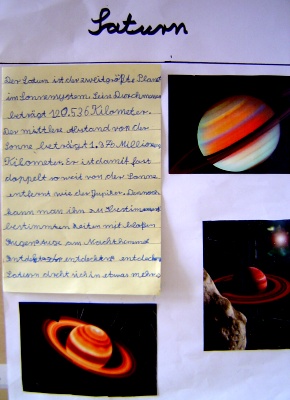 Saturn
Der Saturn ist der zweitgrößte Planet
im Sonnensystem. Sein Durchmesser
beträgt 120.536 Kilometer.
Der mittlere Abstand von der
Sonne beträgt 1.430 Millionen
Kilometer. Er ist damit fast
doppelt so weit von der Sonne
entfernt wie der Jupiter. Dennoch
kann man ihn zu bestimmten
bestimmten Zeiten mit bloßem
Auge am Nachthimmel
entdecken
Saturn dreht sich in etwas mehr